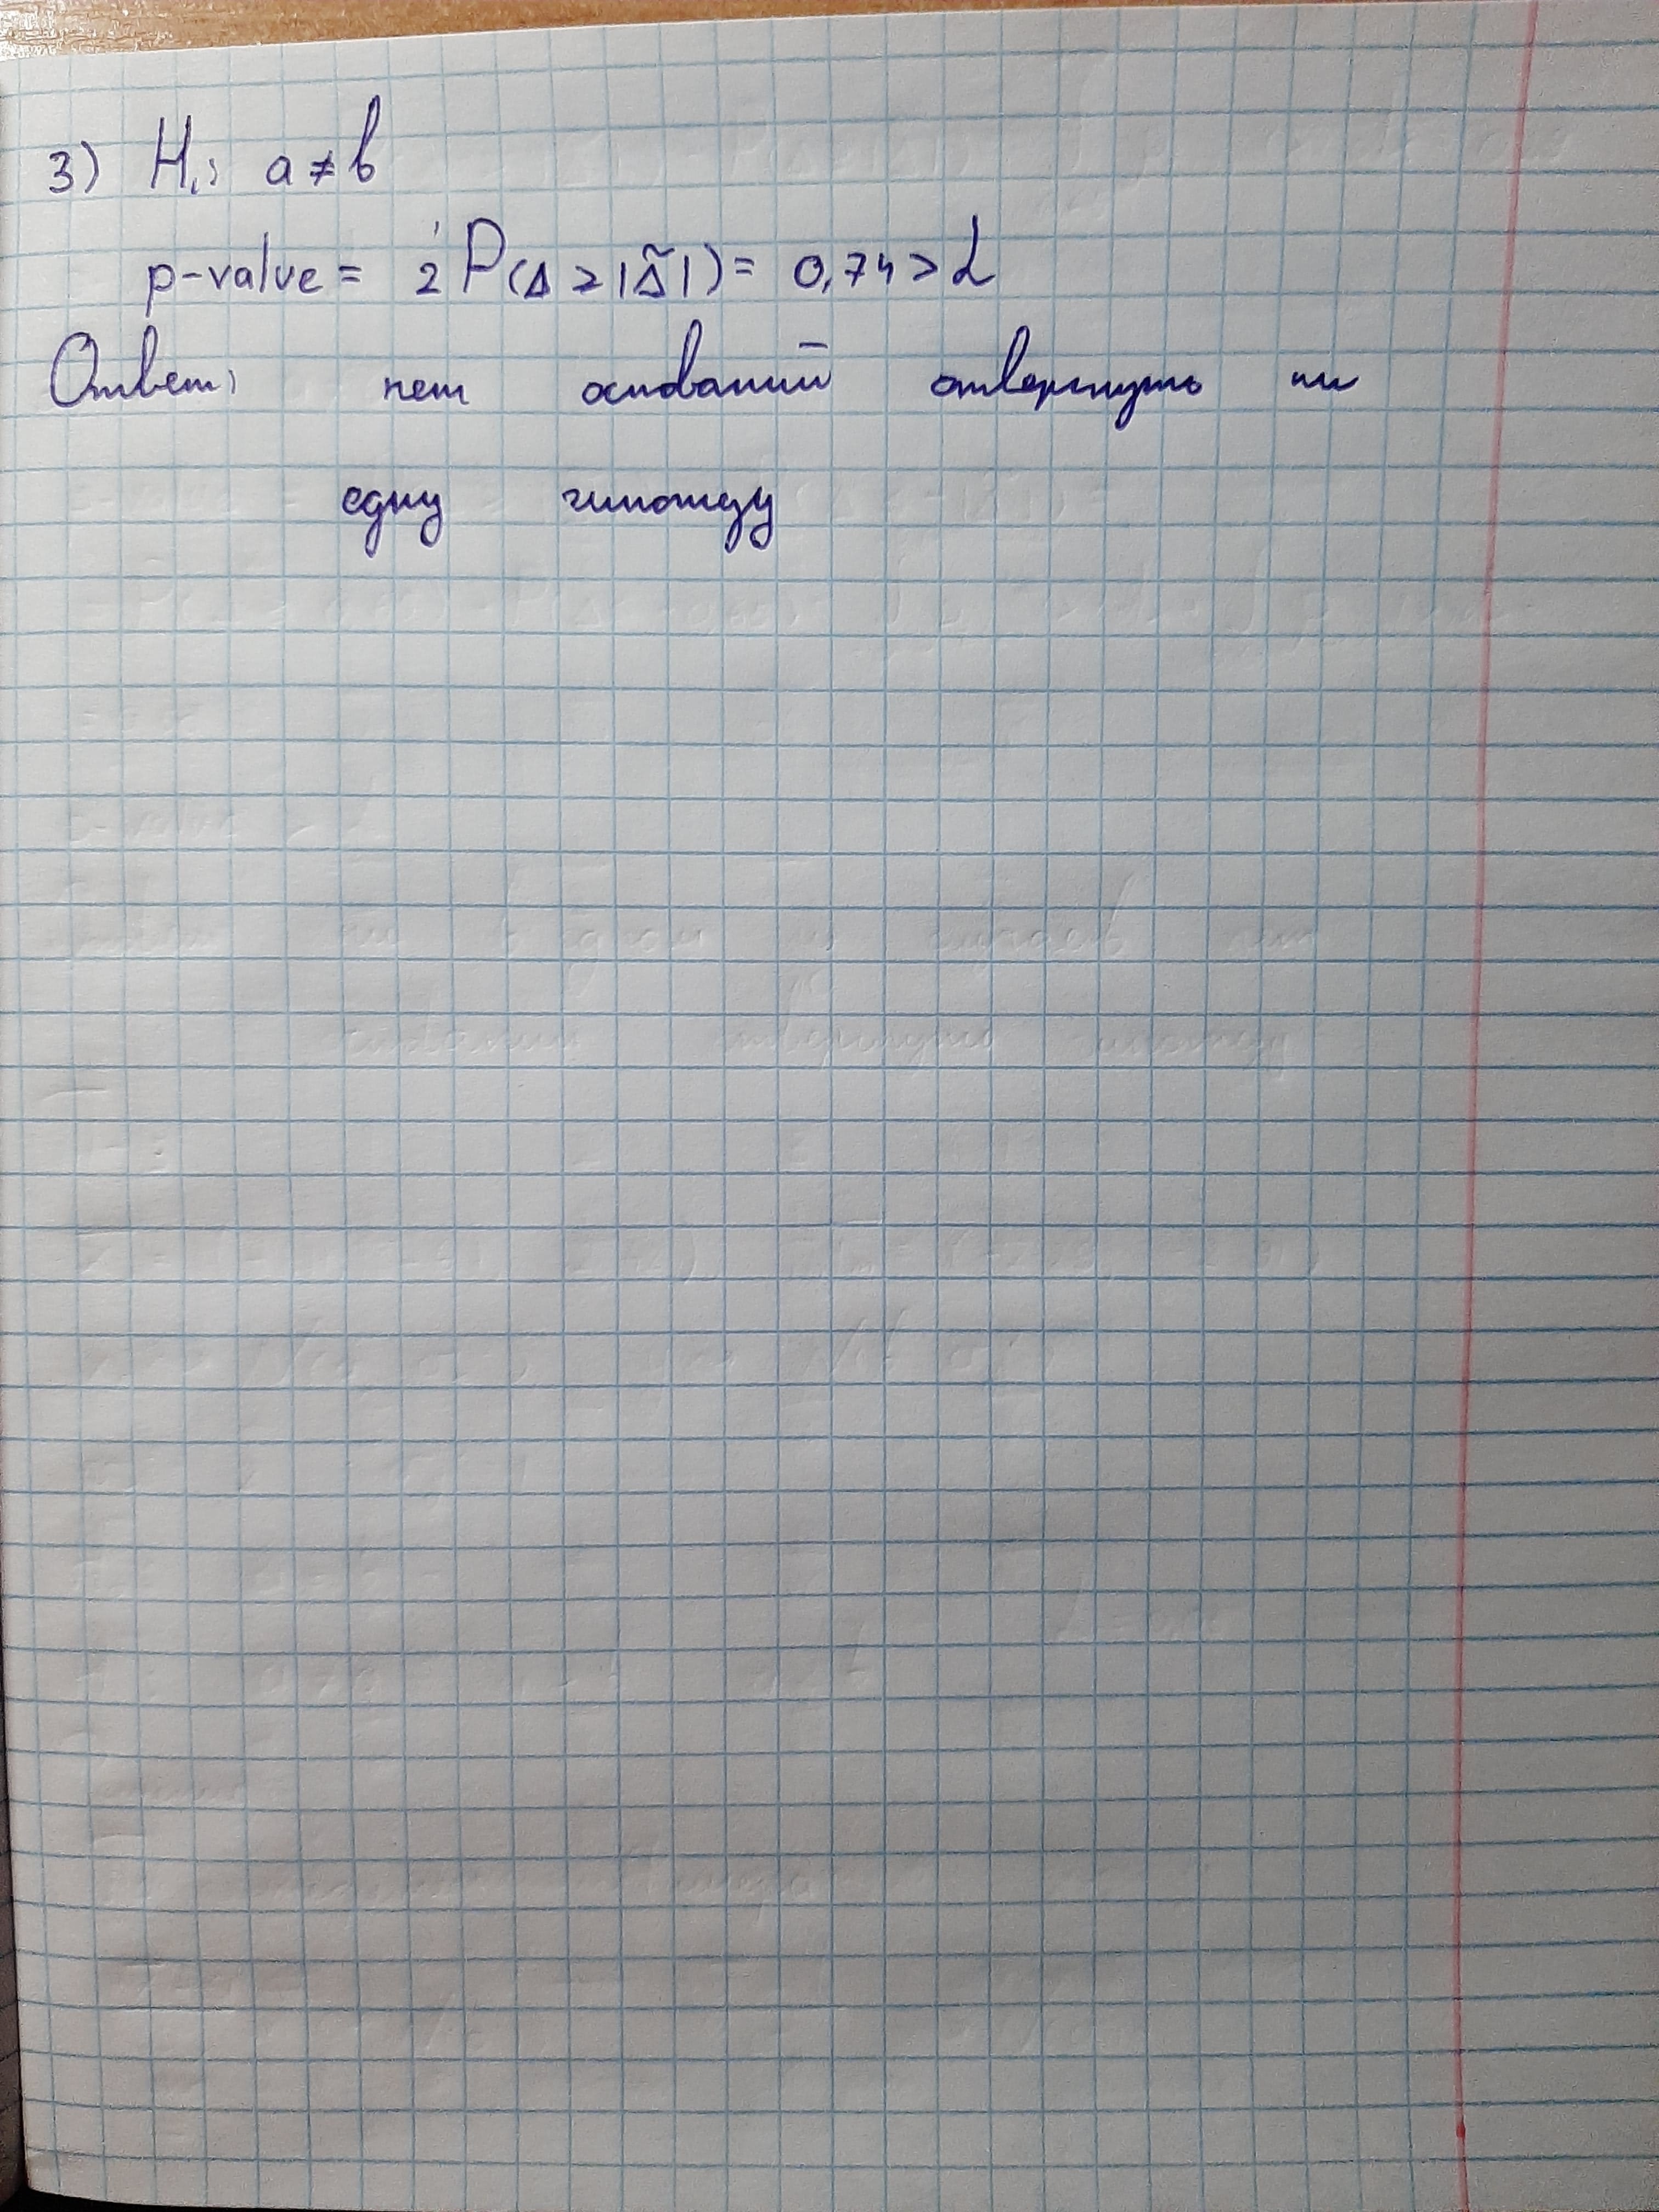 3) H₁: a ≠ b
p-value = 2 P(Δ ≥ |Δ̃|) = 0,74 > α
Ответ: нет оснований отвергнуть ни
одну гипотезу